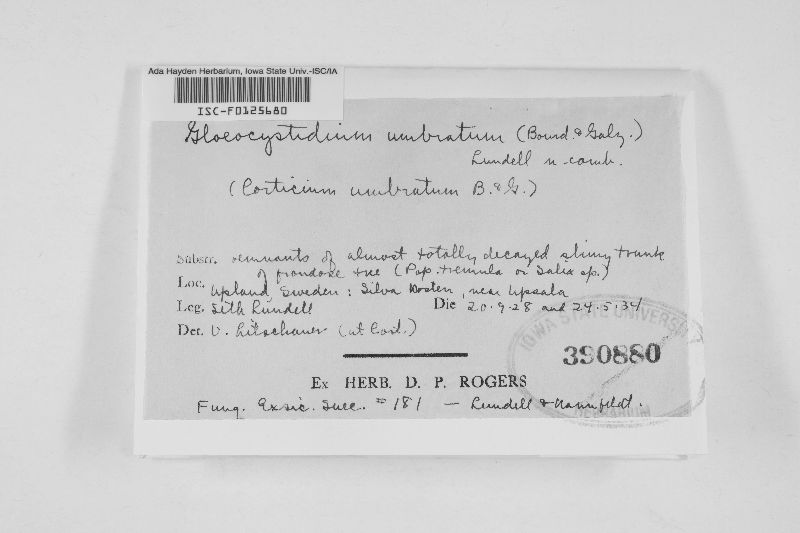 Ada Hayden Herbarium, Iowa State Univ.-ISC/IA
ISC-F0125680
Gloeocystidium umbratum (Bourd. & Galz.)
Lundell n. comb.
(Corticium umbratum B. & G.)
Substr. remnants of almost totally decayed slimy trunk
of frondose tree (Pop. tremula or Salix sp.)
Loc. Upland, Sweden: Silva Nosten, near Upsala
Leg. Seth Lundell Die 20.9.28 and 24.5.34
Det. V. Litschauer (ut Cort.)
IOWA STATE UNIVERSITY
HERBARIUM
390880
Ex HERB. D. P. ROGERS
Fung. Exsic. Suec. #181 — Lundell & Nannfeldt.